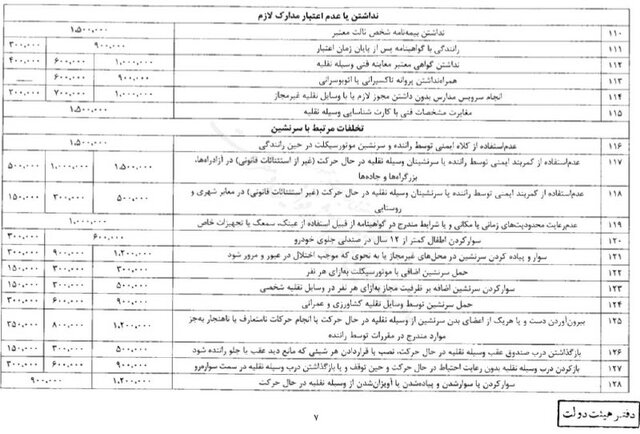 نداشتن یا عدم اعتبار مدارک لازم
۱۱۰ نداشتن بیمه‌نامه شخص ثالث معتبر ۱,۵۰۰,۰۰۰
۱۱۱ رانندگی با گواهینامه پس از پایان زمان اعتبار ۹۰۰,۰۰۰ ۳۰۰,۰۰۰
۱۱۲ نداشتن گواهی معتبر معاینه فنی وسیله نقلیه ۱,۰۰۰,۰۰۰ ۶۰۰,۰۰۰ ۴۰۰,۰۰۰
۱۱۳ همراه‌نداشتن پروانه تاکسیرانی یا اتوبوسرانی ۹۰۰,۰۰۰ ۶۰۰,۰۰۰
۱۱۴ انجام سرویس مدارس بدون داشتن مجوز لازم یا با وسایل نقلیه غیرمجاز ۱,۰۰۰,۰۰۰ ۷۰۰,۰۰۰ ۳۰۰,۰۰۰
۱۱۵ مغایرت مشخصات فنی با کارت شناسایی وسیله نقلیه ۱,۵۰۰,۰۰۰
تخلفات مرتبط با سرنشین
۱۱۶ عدم‌استفاده از کلاه ایمنی توسط راننده و سرنشین موتورسیکلت در حین رانندگی
۱۱۷ عدم‌استفاده از کمربند ایمنی توسط راننده یا سرنشینان وسیله نقلیه در حال حرکت (غیر از استثنائات قانونی) در آزادراه‌ها، ۱,۵۰۰,۰۰۰ ۱,۰۰۰,۰۰۰ ۵۰۰,۰۰۰
بزرگراه‌ها و جاده‌ها
۱۱۸ عدم‌استفاده از کمربند ایمنی توسط راننده یا سرنشینان وسیله نقلیه در حال حرکت (غیر استثنائات قانونی) در معابر شهری و ۵۰۰,۰۰۰ ۳۰۰,۰۰۰ ۱۵۰,۰۰۰
روستایی
۱۱۹ عدم‌رعایت محدودیت‌های زمانی یا مکانی و یا شرایط مندرج در گواهینامه از قبیل استفاده از عینک، سمعک یا تجهیزات خاص ۱,۰۰۰,۰۰۰
۱۲۰ سوارکردن اطفال کمتر از ۱۲ سال در صندلی جلوی خودرو ۶۰۰,۰۰۰ ۳۰۰,۰۰۰
۱۲۱ سوار و پیاده کردن سرنشین در محل‌های غیرمجاز یا به نحوی که موجب اختلال در عبور و مرور شود ۱,۲۰۰,۰۰۰ ۹۰۰,۰۰۰ ۳۰۰,۰۰۰
۱۲۲ حمل سرنشین اضافی با موتورسیکلت به‌ازای هر نفر ۳۰۰,۰۰۰ ۱۵۰,۰۰۰
۱۲۳ سوارکردن سرنشین اضافه بر ظرفیت مجاز به‌ازای هر نفر در وسایل نقلیه شخصی ۵۰۰,۰۰۰ ۳۰۰,۰۰۰ ۱۵۰,۰۰۰
۱۲۴ حمل سرنشین توسط وسایل نقلیه کشاورزی و عمرانی ۹۰۰,۰۰۰ ۶۰۰,۰۰۰ ۳۰۰,۰۰۰
۱۲۵ بیرون‌آوردن دست و یا هریک از اعضای بدن سرنشین از وسیله نقلیه در حال حرکت یا انجام حرکات نامتعارف یا ناهنجار به‌جز ۱,۲۰۰,۰۰۰ ۸۰۰,۰۰۰ ۲۵۰,۰۰۰
موارد مندرج در مقررات توسط راننده
۱۲۶ بازگذاشتن درب صندوق عقب وسیله نقلیه در حال حرکت، نصب یا قراردادن هر شیئی که مانع دید عقب یا جلو راننده شود ۵۰۰,۰۰۰ ۳۰۰,۰۰۰ ۱۵۰,۰۰۰
۱۲۷ بازکردن درب وسیله نقلیه بدون رعایت احتیاط در حال حرکت و حین توقف و یا بازگذاشتن درب وسیله نقلیه در سمت سواره‌رو ۹۰۰,۰۰۰ ۶۰۰,۰۰۰ ۳۰۰,۰۰۰
۱۲۸ سوارکردن یا سوارشدن و پیاده‌شدن یا آویزان‌شدن از وسیله نقلیه در حال حرکت ۱,۲۰۰,۰۰۰ ۹۰۰,۰۰۰
۷
دفتر هیئت دولت